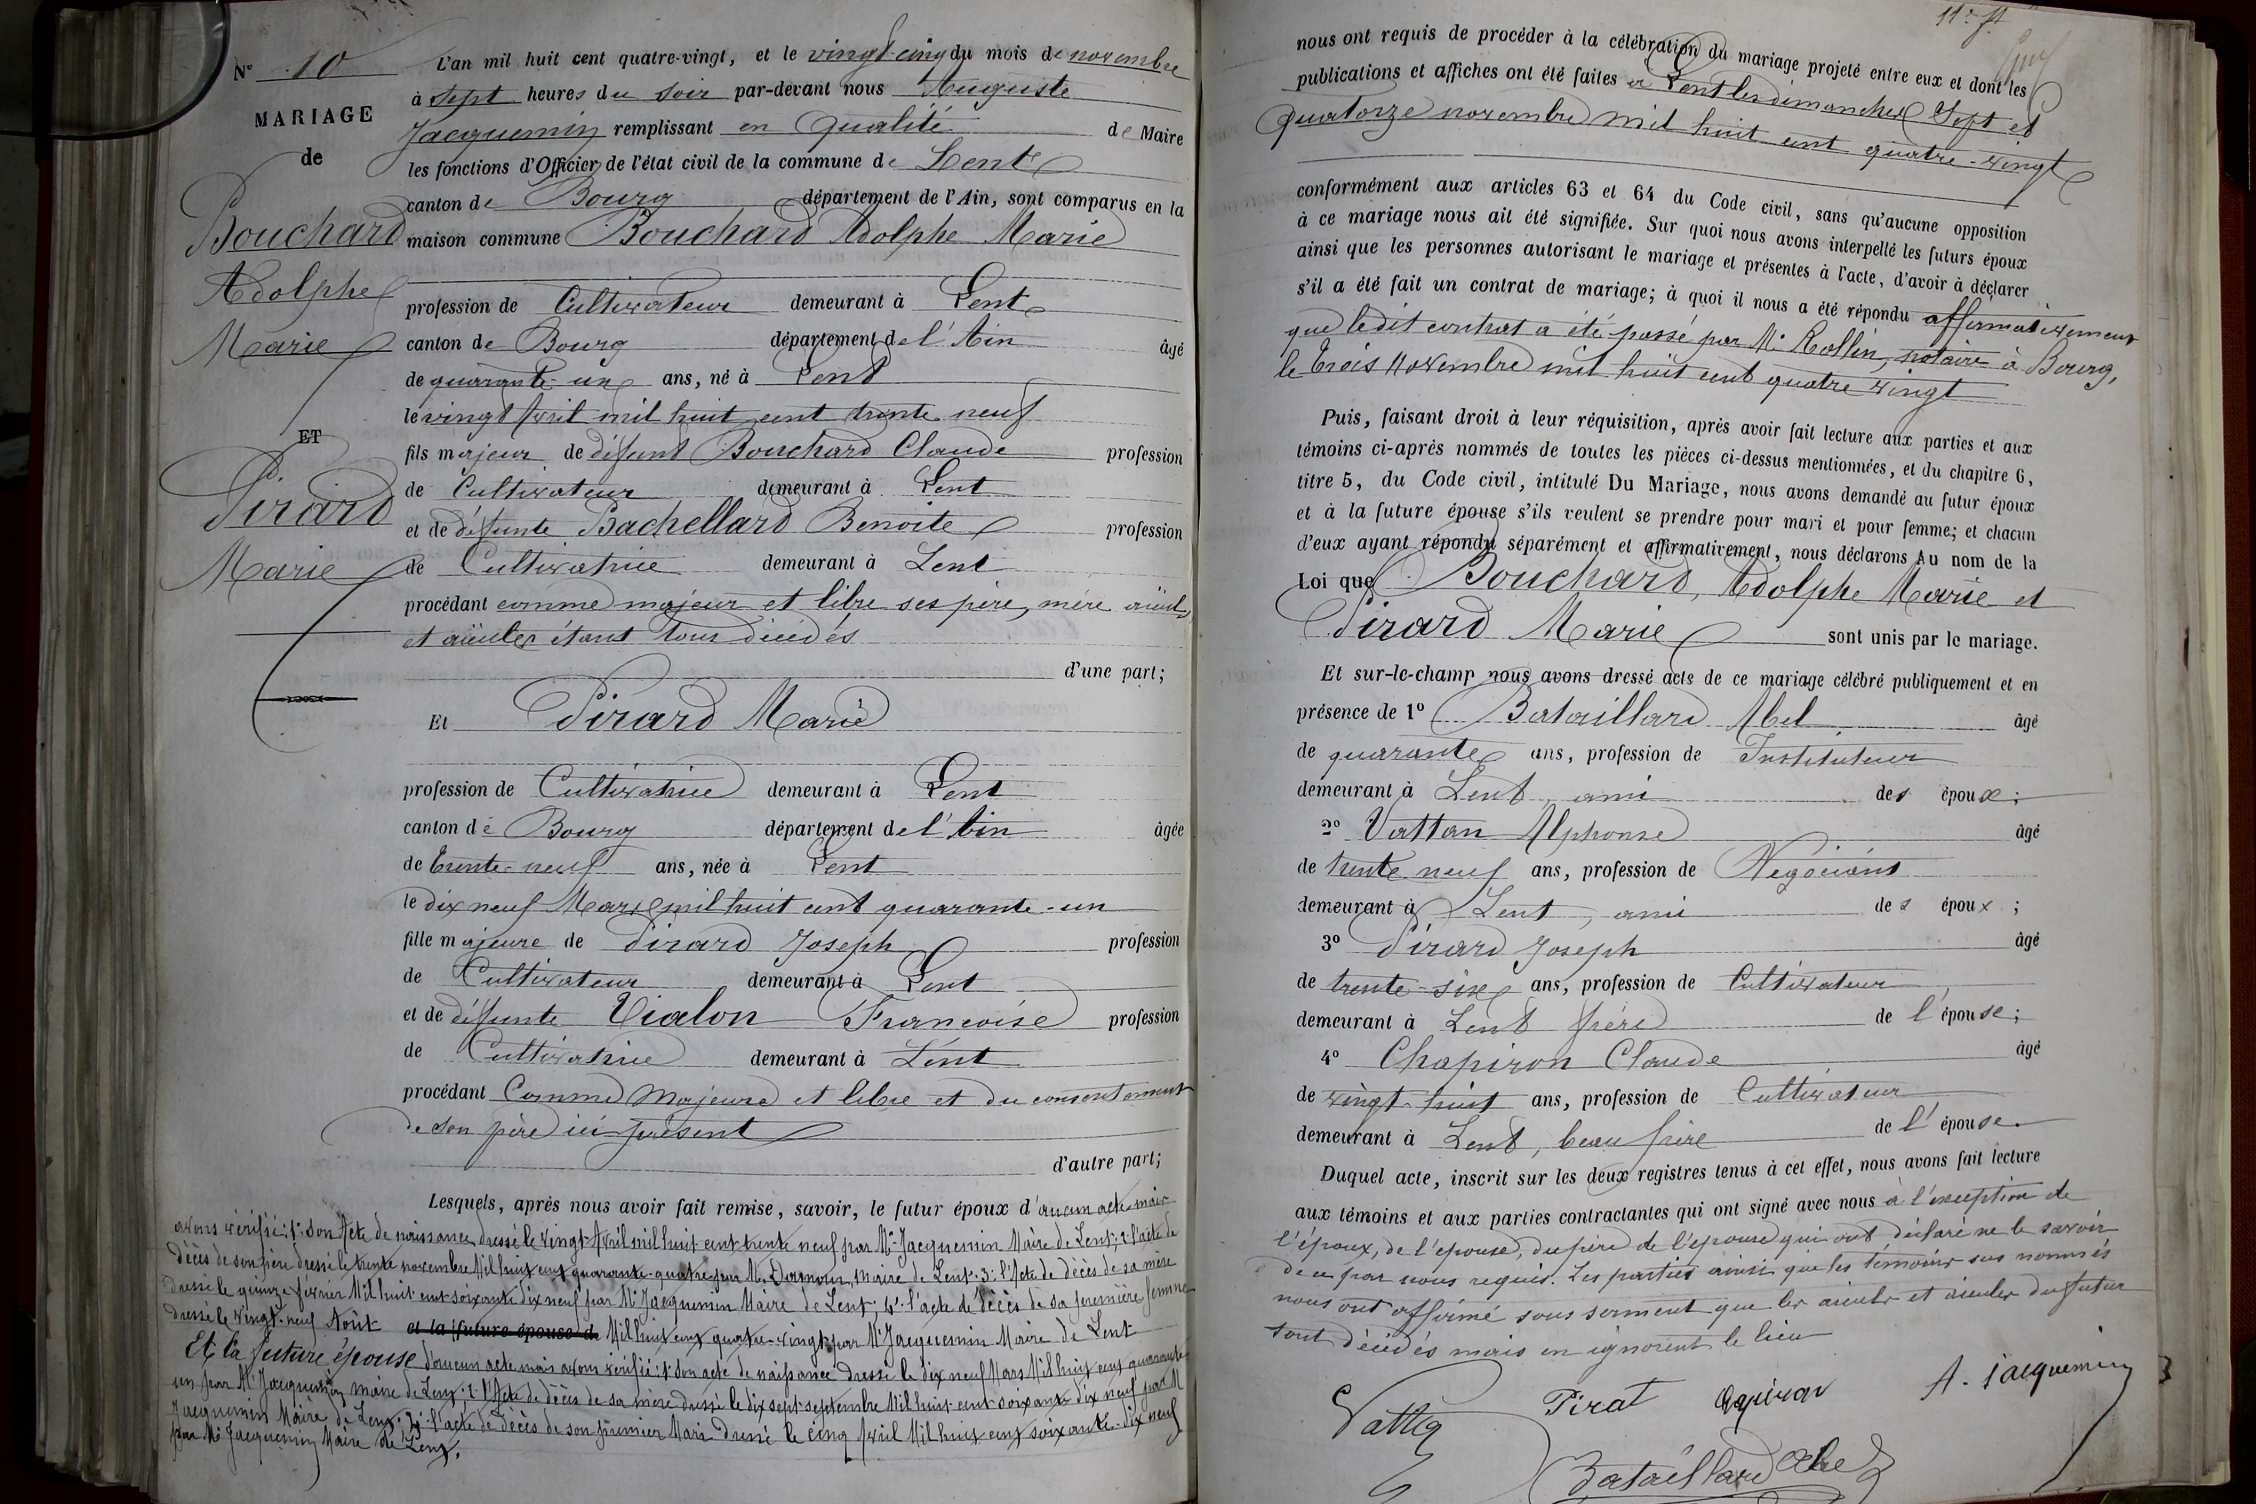 N° 10
MARIAGE
de
Bouchard
Adolphe
Marie
ET
Pirard
Marie
L'an mil huit cent quatre-vingt, et le vingt-cinq du mois de novembre
à sept heures du soir par-devant nous Auguste
Jacquemin remplissant en qualité de Maire
les fonctions d'Officier de l'état civil de la commune de Lent
canton de Bourg département de l'Ain, sont comparus en la
maison commune Bouchard Adolphe Marie
profession de Cultivateur demeurant à Lent
canton de Bourg département de l'Ain âgé
de quarante-un ans, né à Lent
le vingt Avril mil huit cent trente neuf
fils majeur de défunt Bouchard Claude profession
de Cultivateur demeurant à Lent
et de défunte Bachellard Benoite profession
de Cultivatrice demeurant à Lent
procédant comme majeur et libre ses père, mère aïeuls
et aïeules étant tous décédés
d'une part;
Et Pirard Marie
profession de Cultivatrice demeurant à Lent
canton de Bourg département de l'Ain âgée
de trente-neuf ans, née à Lent
le dix neuf Mars mil huit cent quarante-un
fille majeure de Pirard Joseph profession
de Cultivateur demeurant à Lent
et de défunte Vialon Françoise profession
de Cultivatrice demeurant à Lent
procédant Comme Majeure et libre et du consentement
de son père ici présent
d'autre part;
Lesquels, après nous avoir fait remise, savoir, le futur époux d'aucun acte mais
avons vérifié: 1° son Acte de naissance dressé le vingt Avril mil huit cent trente neuf par Mr Jacquemin Maire de Lent; 2° l'acte de
décès de son père dressé le trente novembre Mil huit cent quarante-quatre par M. Damour, maire de Lent. 3° l'Acte de décès de sa mère
dressé le quinze février Mil huit cent soixante dix neuf par Mr Jacquemin Maire de Lent; 4° l'acte de décès de sa première femme
dressé le vingt-neuf Août et la future épouse de Mil huit cent quatre-vingt par Mr Jacquemin Maire de Lent
Et la future épouse d'aucun acte mais avons vérifié: 1° son acte de naissance dressé le dix neuf Mars Mil huit cent quarante
un par Mr Jacquemin maire de Lent; 2° l'Acte de décès de sa mère dressé le dix sept septembre Mil huit cent soixante dix neuf par M
Jacquemin Maire de Lent; 3° l'acte de décès de son premier Mari dressé le cinq Avril Mil huit cent soixante-dix neuf
par Mr Jacquemin Maire de Lent.
nous ont requis de procéder à la célébration du mariage projeté entre eux et dont les
publications et affiches ont été faites à Lent les dimanches Sept et
quatorze novembre mil huit cent quatre-vingt
conformément aux articles 63 et 64 du Code civil, sans qu'aucune opposition
à ce mariage nous ait été signifiée. Sur quoi nous avons interpellé les futurs époux
ainsi que les personnes autorisant le mariage et présentes à l'acte, d'avoir à déclarer
s'il a été fait un contrat de mariage; à quoi il nous a été répondu affirmativement
que ledit contrat a été passé par Me Rollin, notaire à Bourg,
le trois Novembre mil huit cent quatre vingt
Puis, faisant droit à leur réquisition, après avoir fait lecture aux parties et aux
témoins ci-après nommés de toutes les pièces ci-dessus mentionnées, et du chapitre 6,
titre 5, du Code civil, intitulé Du Mariage, nous avons demandé au futur époux
et à la future épouse s'ils veulent se prendre pour mari et pour femme; et chacun
d'eux ayant répondu séparément et affirmativement, nous déclarons Au nom de la
Loi que Bouchard, Adolphe Marie et
Pirard Marie sont unis par le mariage.
Et sur-le-champ nous avons dressé acte de ce mariage célébré publiquement et en
présence de 1° Bataillard Abel âgé
de quarante ans, profession de Instituteur
demeurant à Lent, ami des époux;
2° Vattan Alphonse âgé
de trente neuf ans, profession de Négociant
demeurant à Lent, ami des époux;
3° Pirard Joseph âgé
de trente-six ans, profession de Cultivateur
demeurant à Lent frère de l'épouse;
4° Chapiron Claude âgé
de vingt-huit ans, profession de Cultivateur
demeurant à Lent, beau frère de l'épouse.
Duquel acte, inscrit sur les deux registres tenus à cet effet, nous avons fait lecture
aux témoins et aux parties contractantes qui ont signé avec nous à l'exception de
l'époux, de l'épouse, du père de l'épouse qui ont déclaré ne le savoir
de ce par nous requis. Les parties ainsi que les témoins sus nommés
nous ont affirmé sous serment que les aïeuls et aïeules du futur
sont décédés mais en ignorent le lieu
Pirat A. Jacquemin
Bataillard Abel